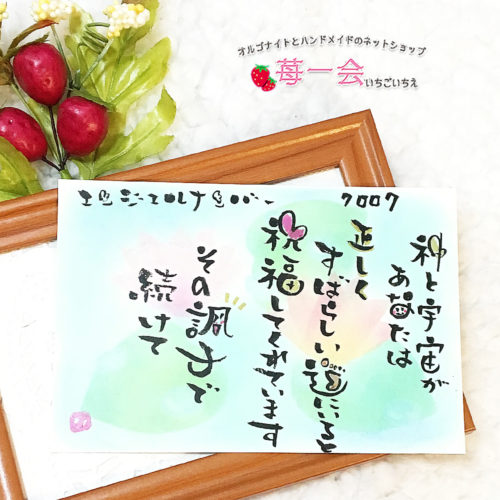 オルゴナイトとハンドメイドのネットショップ
苺一会 いちごいちえ
エンジェルナンバー 7007
神と宇宙が
あなたは
正しく
すばらしい道にいると
祝福してくれています
その調子で
続けて